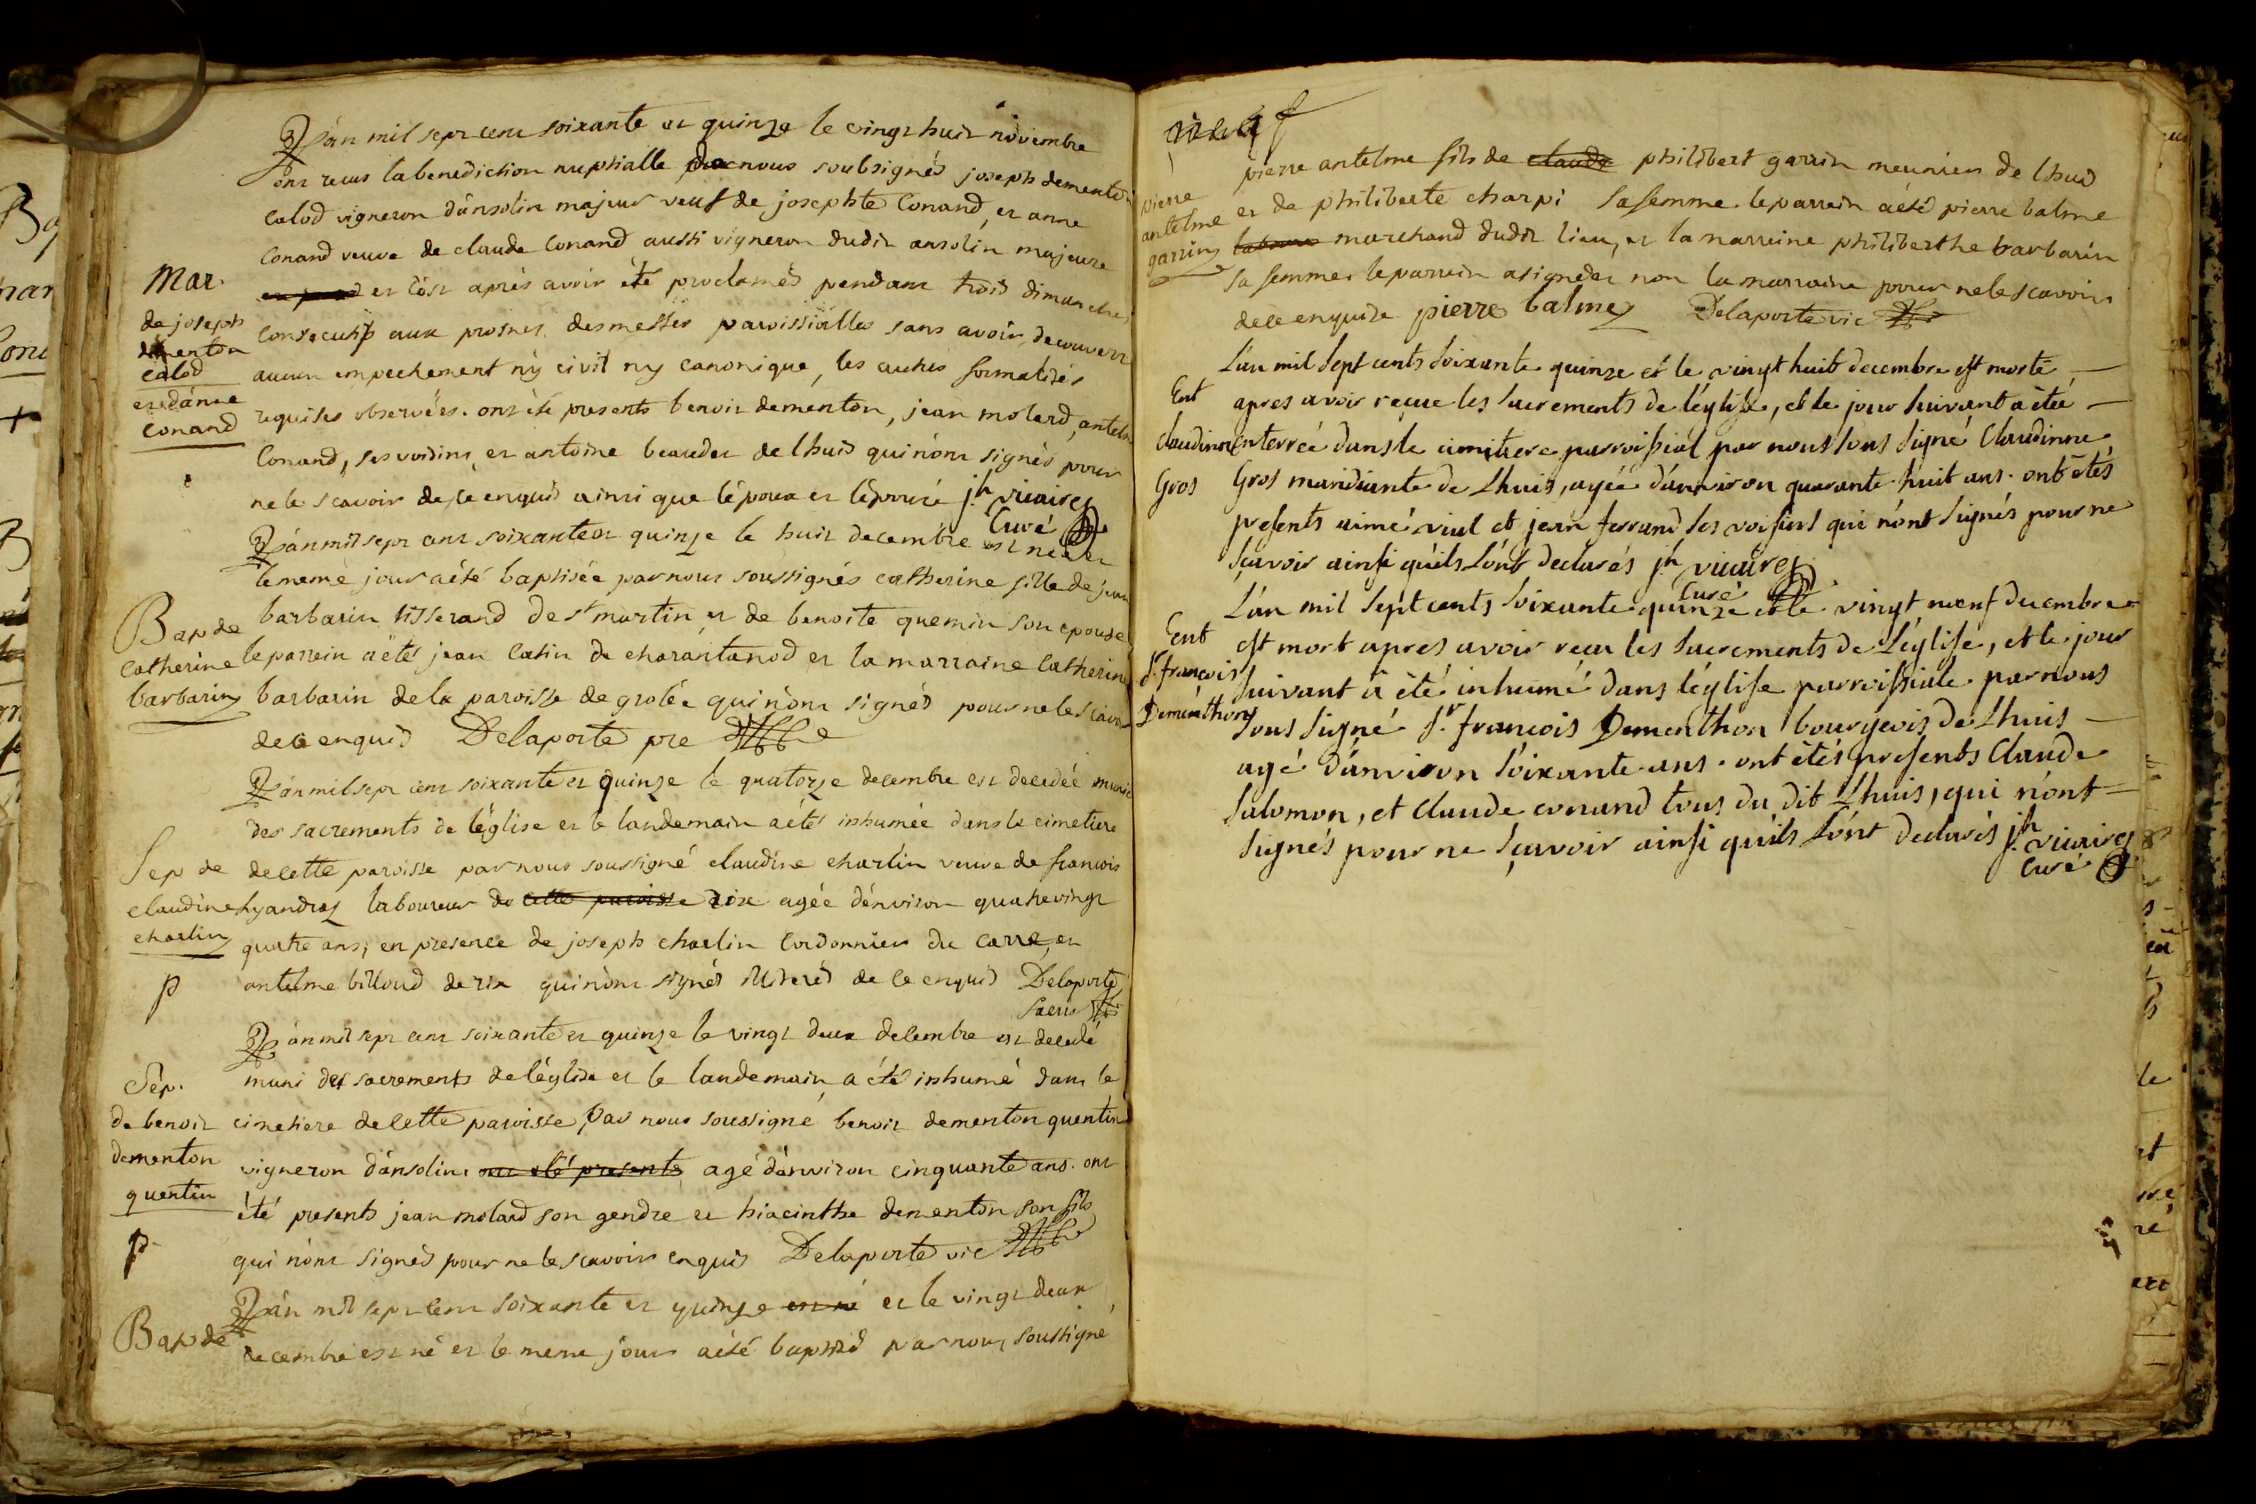 L'án mil sept cent soixante et quinze le vingt huit novembre
ont recus la benediction nuptialle par nous soubsignés joseph dementon
calod vigneron dánsolin majeur veuf de josephte Conand, et anne
Conand veuve de claude Conand aussi vigneron dudit ansolin majeure
et cést aprés avoir été proclamés pendant trois dimanches
Mar.
de joseph
dementon
calod
et dánne
Conand
consecutifs aux prosnes des messes paroissialles sans avoir decouvert
aucun empechement ny civil ny canonique, les autres formalités
requises observées. ont été presents benoit dementon, jean molard, antelme
Conand, ses voisins, et antoine beaudet de lhuis qui nónt signés pour
ne le scavoir de ce enquis ainsi que lépoux et lépouse jh. vicaire
Curé
L'án mil sept cent soixante et quinze le huit decembre est née et
le meme jour a été baptisée par nous soussignés catherine fille de jean
Bap de
Catherine
barbarin
barbarin tisserand de st martin et de benoite quemin son epouse
le parrein a étés jean catin de charantanod et la marraine Catherine
barbarin de la paroisse de grolée qui nónt signés pour ne le scavoir
de ce enquis Delaporte pre
L'án mil sept cent soixante et quinze le quatorze decembre est decedée munie
des sacrements de léglise et le landemain a étés inhumée dans le cimetiere
Sep de
claudine
charlin
P
de cette paroisse par nous soussigné claudine charlin veuve de francois
Lyandraz laboureur de cette paroisse rix agée dénviron quatrevingt
quatre ans, en presence de joseph charlin Cordonnier du Carre, et
antelme billoud de rix qui nónt signés illiterés de ce enquis Delaporte
L'án mil sept cent soixante et quinze le vingt deux decembre est decedé
muni des sacrements de léglise et le landemain a été inhumé dans le
Sép.
de benoit
dementon
quentin
P.
cimetiere de cette paroisse, Par nous soussigné benoit dementon quentin
vigneron dánsolin, ont été presents agé dánviron cinquante ans. ont
été presents jean molard son gendre et hiacinthe dementon son fils
qui nónt signés pour ne le scavoir enquis Delaporte vic
L'án mil sept cent soixante et quinze est né et le vingt deux
Bap de
decembre est né et le meme jour a été baptisé par nous soussigné
pierre
antelme
garrin
pierre antelme fils de claude philibert garrin meunier de lhuis
et de philiberte charpi sa femme. le parrein a été pierre balme
marchand dudit lieu, et la marreine philiberthe barbarin
sa femme. le parrein a signé et non la marraine pour ne le scavoir
de ce enquise pierre balme Delaporte vic
L'án mil sept cents soixante quinze et le vingt huit decembre est morte
Ent
Claudinne
Gros
apres avoir reçue les sacrements de léglise, et le jour suivant a étée
enterrée dans le cimitiere parroissial par nous sous signé Claudinne
Gros mandiante de Lhuis, agée dánviron quarante huit ans. ont étés
presents aimé viul et jean ferrand ses voisins qui nónt signés pour ne
sçavoir ainsi quils lónt declarés jh. vicaire
Curé
L'án mil sept cents soixante quinze et le vingt neuf decembre
Ent
Sr. françois
Deménthon
est mort apres avoir recu les sacrements de Léglise, et le jour
suivant a été inhumé dans léglise parroissiale par nous
sous signé Sr. françois Dementhon bourgeois de Lhuis
agé dánviron soixante ans. ont étés presents Claude
Salomon, et Claude conand tous du dit Lhuis, qui nónt
signés pour ne sçavoir ainsi quils lónt declarés jh. vicaire
Curé